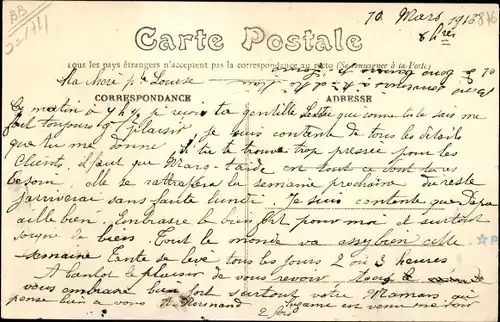 10 Mars 1916
8 hres
Carte Postale
Tous les pays étrangers n'acceptent pas la correspondance au recto (Se renseigner à la Poste)
Ma chère pte Louise
CORRESPONDANCE ADRESSE
Ce matin à 7 h ½ je reçois ta gentille lettre qui comme tu le sais me
fait toujours plaisir. Je suis contente de tous les détails
que tu me donne. Si tu te trouve trop pressée pour les
Clients, il faut que Marg-
besoin, elle se rattrapera la semaine prochaine du reste
j'arriverai sans faute lundi. Je suis contente que Papa
aille bien. Embrasse le bien fort pour moi et surtout
soigne le bien. Tout le monde va assez bien cette
semaine. Tante se lève tous les jours 2 ou 3 heures
A tantôt le plaisir de vous revoir
vous embrasse bien fort surtout votre Maman qui
pense bien à vous
2 fois